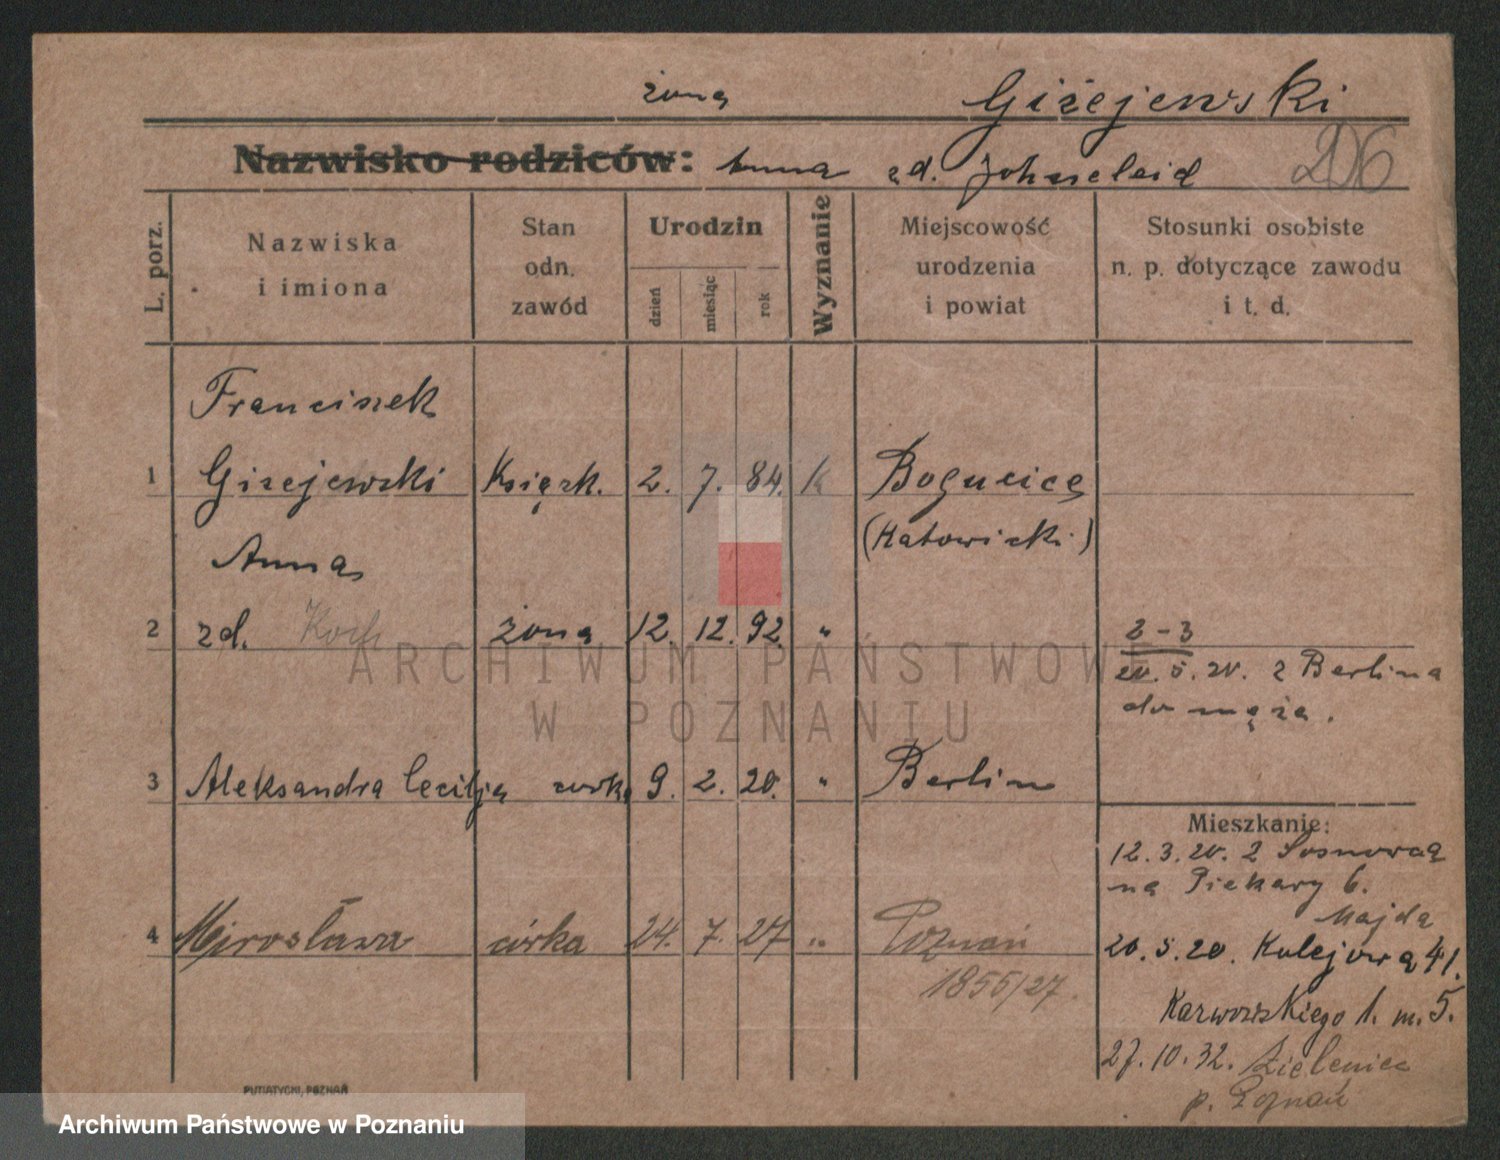 żona Giżejewski
Nazwisko rodziców: Anna zd. Johnscleid 206
L. porz.
Nazwiska i imiona
Stan odn. zawód
Urodzin
dzień miesiąc rok
Wyznanie
Miejscowość urodzenia i powiat
Stosunki osobiste n. p. dotyczące zawodu i t. d.
Franciszek
1 Giżejewski Książk. 2. 7. 84. k Bogucice
(Katowicki)
Anna
2 zd. Koch żona 12. 12. 92. "
2-3
20. 5. 20. z Berlina
do męża.
3 Aleksandra Cecilja córka 9. 2. 20. " Berlin
Mieszkanie:
12. 3. 20. z Sosnowca
na Piekary 6.
Majda
4 Mirosława córka 24. 7. 27 " Poznań
1855/27
20. 5. 20. Kolejowa 41.
Karwowskiego 1. m. 5.
27. 10. 32. Zieleniec
p. Poznań
PUTIATYCKI, POZNAŃ
ARCHIWUM PAŃSTWOWE
W POZNANIU
Archiwum Państwowe w Poznaniu